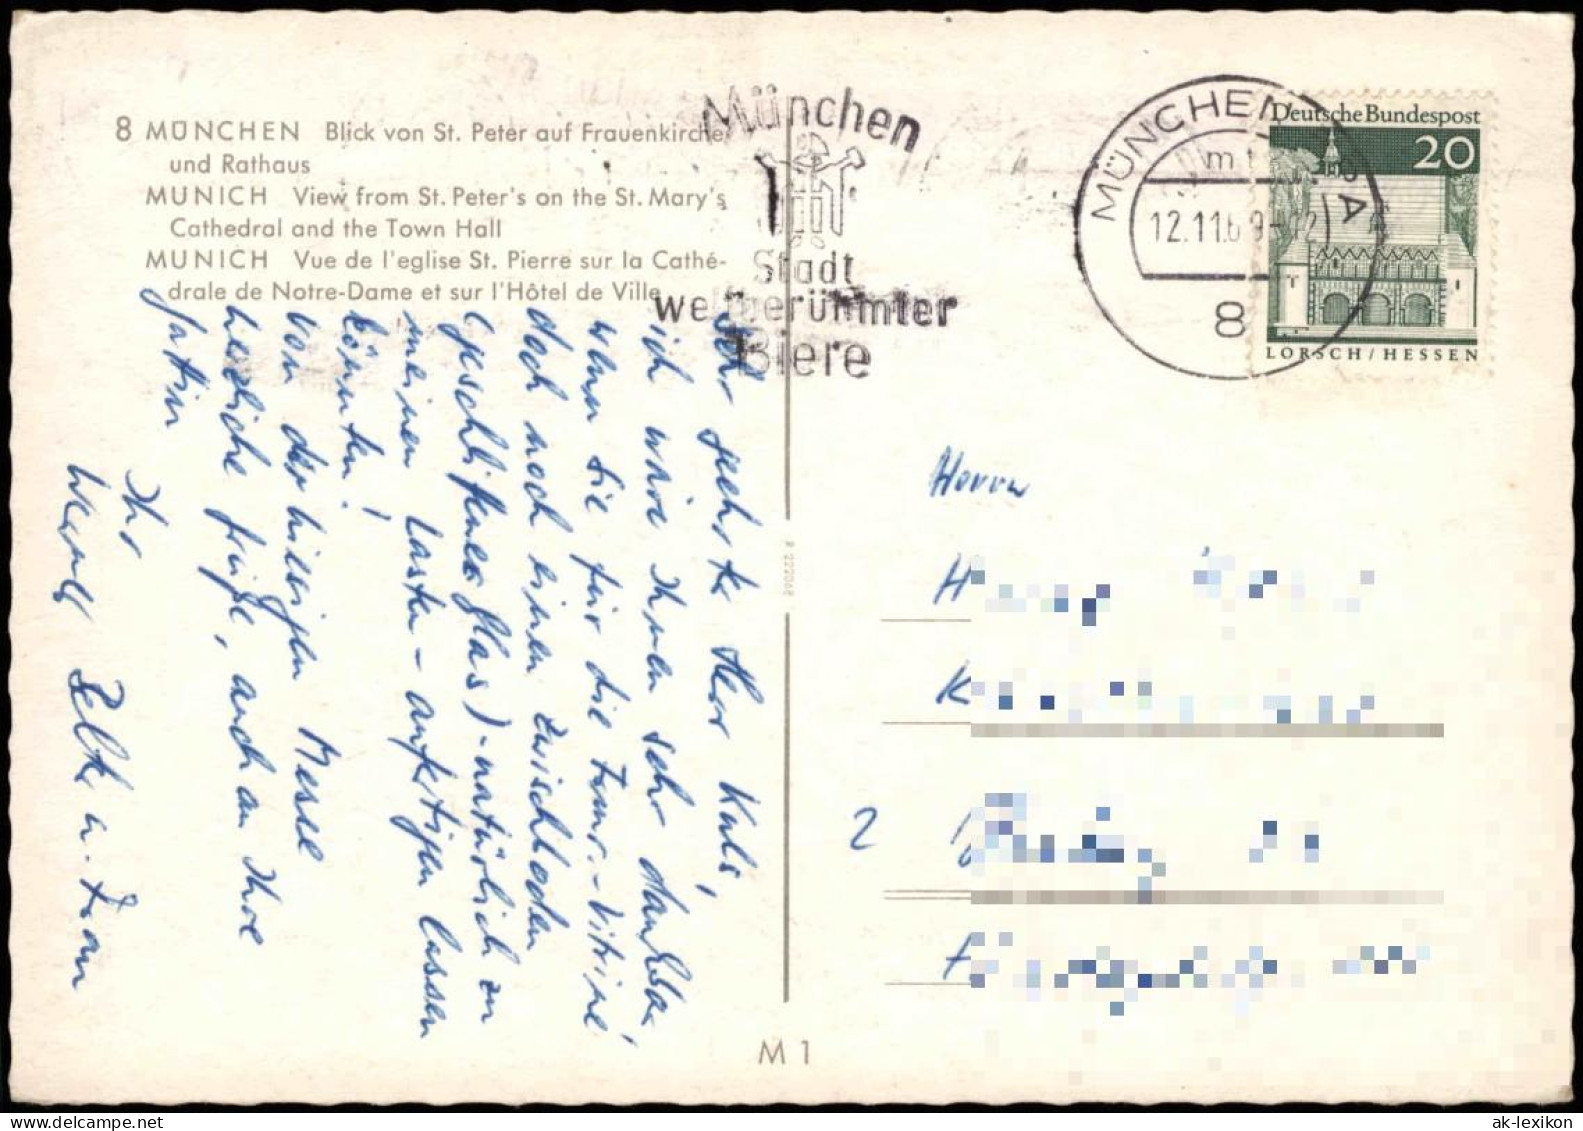 8 MÜNCHEN Blick von St. Peter auf Frauenkirche
und Rathaus
MUNICH View from St. Peter's on the St. Mary's
Cathedral and the Town Hall
MUNICH Vue de l'eglise St. Pierre sur la Cathé-
drale de Notre-Dame et sur l'Hôtel de Ville
München
Stadt
weltberühmter
Biere
MÜNCHEN
12.11.69-12
8
Deutsche Bundespost
20
LORSCH/HESSEN
Sehr geehrter Herr
ich wäre Ihnen sehr dankbar,
wenn Sie für die Vitrine
doch noch einen Zwischboden
(geschliffenes Glas) - natürlich zu
meinen Lasten - anfertigen lassen
könnten!
Von der hiesigen Messe
herzliche Grüße, auch an Ihre
Gattin
Ihr
u. Frau
R 222068
M 1
Herrn
H
K
2
ak-lexikon